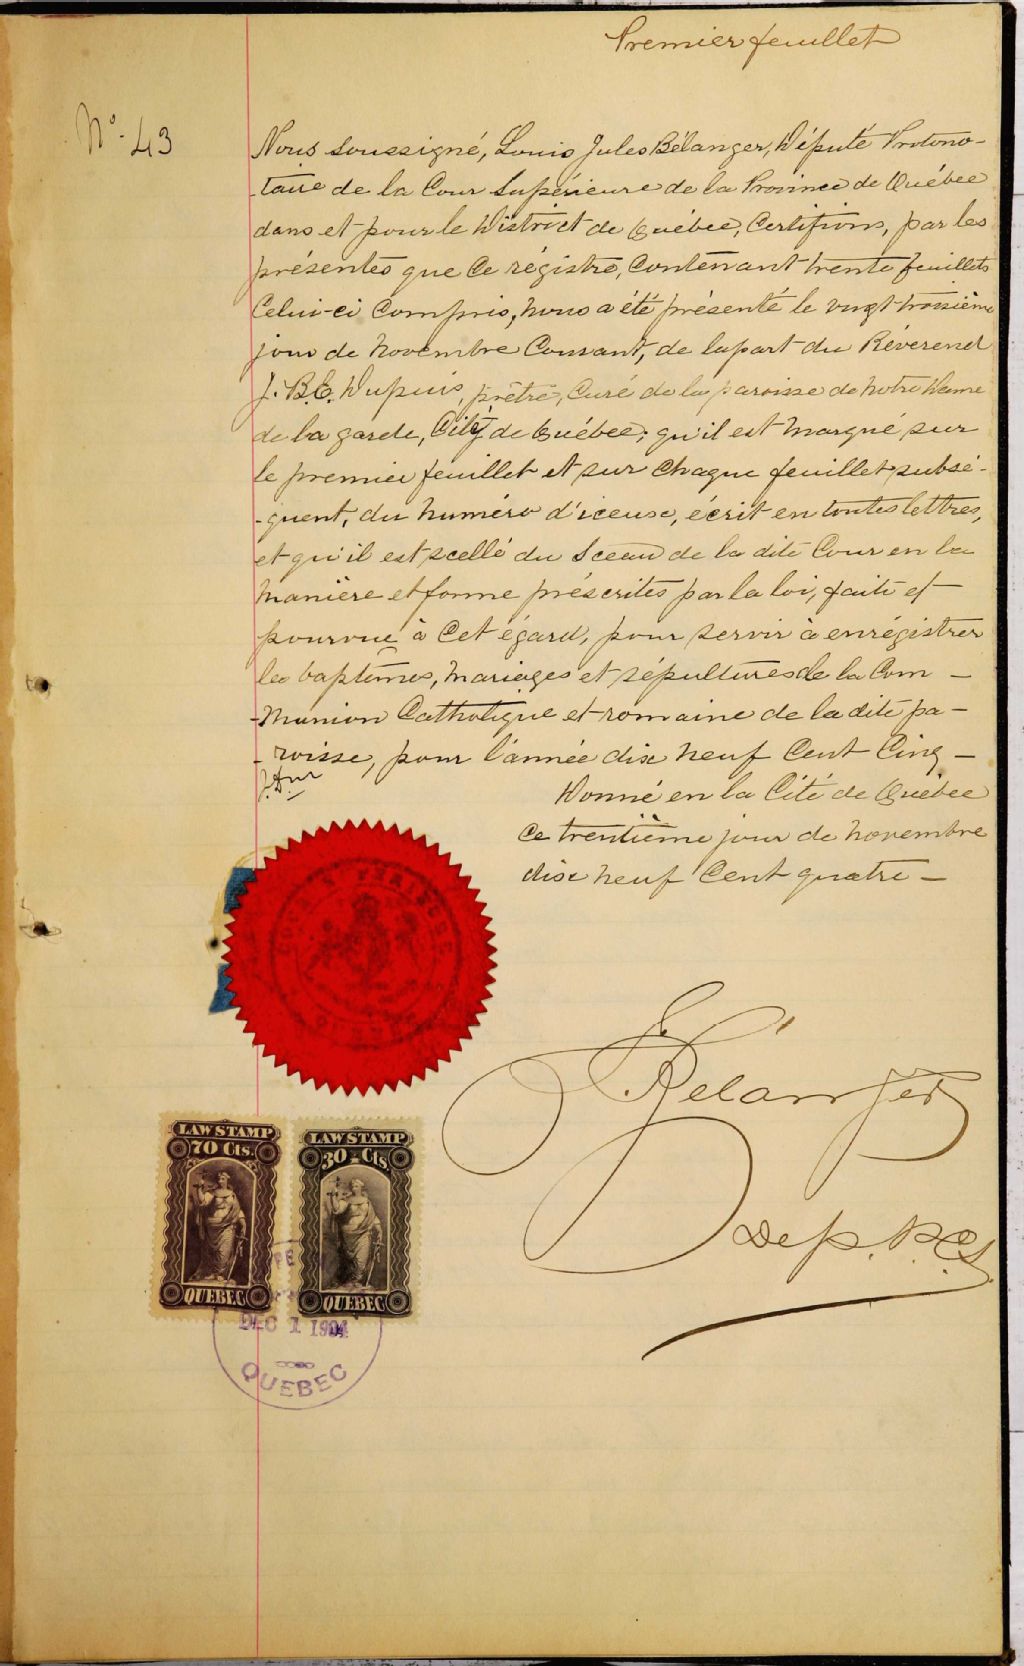 Premier feuillet
No. 43
Nous soussigné, Louis Jules Bélanger, Député Protono-
-taire de la Cour Supérieure de la Province de Québec
dans et pour le District de Québec, Certifions, par les
présentes que ce régistre, contenant trente feuillets
celui-ci compris, nous a été présenté le vingt-troisième
jour de novembre courant, de la part du Révérend
J. B. E. Dupuis, prêtre, Curé de la paroisse de Notre Dame
de la garde, Cité de Québec; qu'il est marqué sur
le premier feuillet et sur chaque feuillet subsé-
-quent, du numéro d'iceux, écrit en toutes lettres,
et qu'il est scellé du Sceau de la dite Cour en la
manière et forme préscrites par la loi, faite et
pourvue à cet égard, pour servir à enrégistrer
les baptêmes, mariages et sépultures de la Com-
-munion Catholique et romaine de la dite pa-
-roisse, pour l'année dix neuf cent cinq -
Donné en la Cité de Québec
ce trentième jour de novembre
dix neuf cent quatre -
Bélanger
Dep. P.C.S.
LAW STAMP
70 Cts.
QUEBEC
LAW STAMP
30 Cts.
QUEBEC
DEC 1 1904
QUEBEC